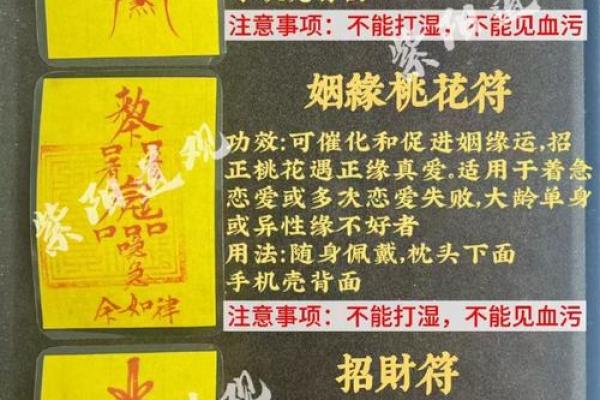 注意事项：不能打湿，不能见血污
姻緣桃花符
功效:可催化和促进姻缘运,招
正桃花遇正缘真爱.适用于着急
恋爱或多次恋爱失败,大龄单身
或异性缘不好者
用法:随身佩戴,枕头下面
手机壳背面
注意事项：不能打湿，不能见血污
急
令如律
招財符